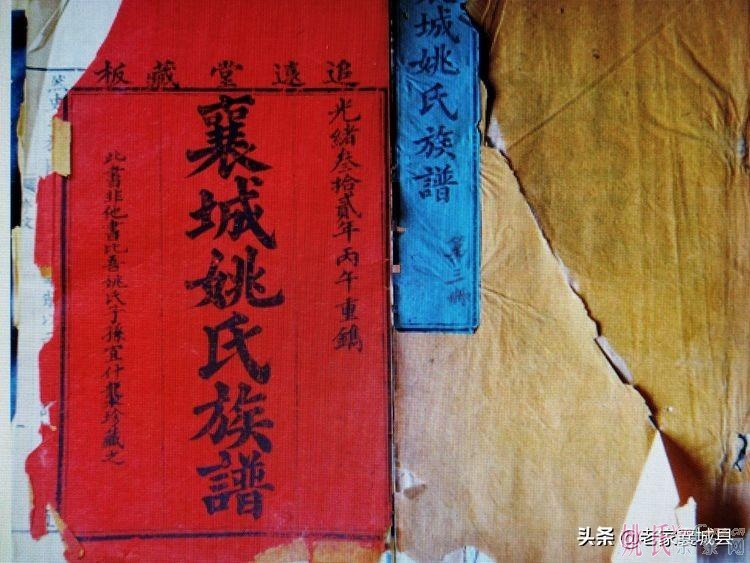 追遠堂藏板
光緒叁拾貳年丙午重鐫
襄城姚氏族譜
此書非他書比吾姚氏子孫宜什襲珍藏之
城姚氏族譜
第三
头条 @老家襄城县
姚氏